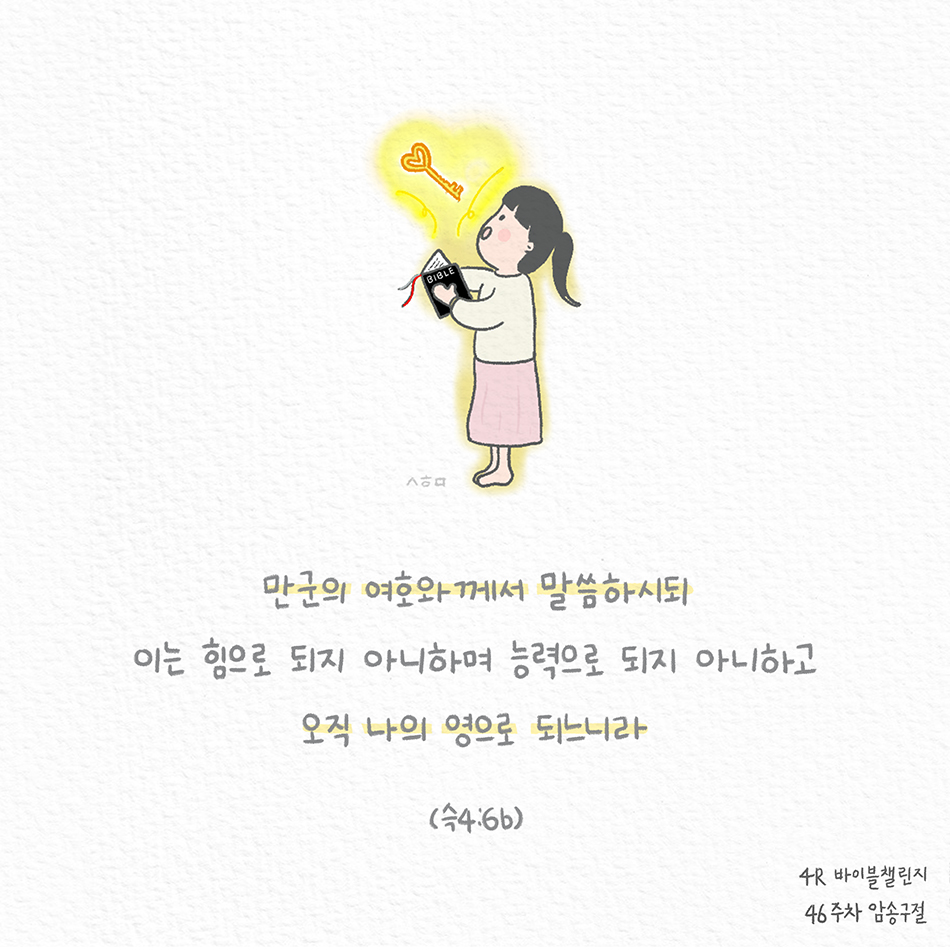 BIBLE
ㅅㅎㅁ
만군의 여호와께서 말씀하시되
이는 힘으로 되지 아니하며 능력으로 되지 아니하고
오직 나의 영으로 되느니라
(슥4:6b)
4R 바이블챌린지
46주차 암송구절